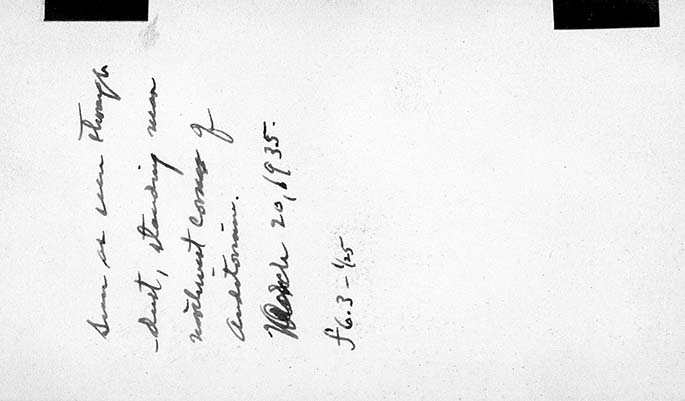 Sun as seen through
dust, standing near
northwest corner of
auditorium.
March 20, 1935.
f 6.3 - 1/25